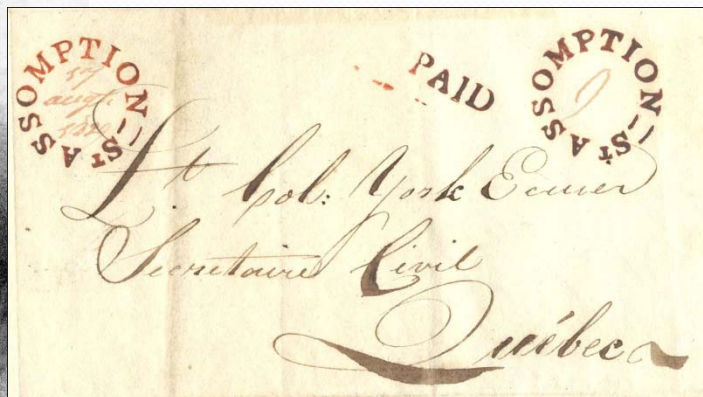 ASSOMPTION - St
17
augt.
PAID
ASSOMPTION - St
Lt. Col: York Ecuier
Secretaire Civil
Québec